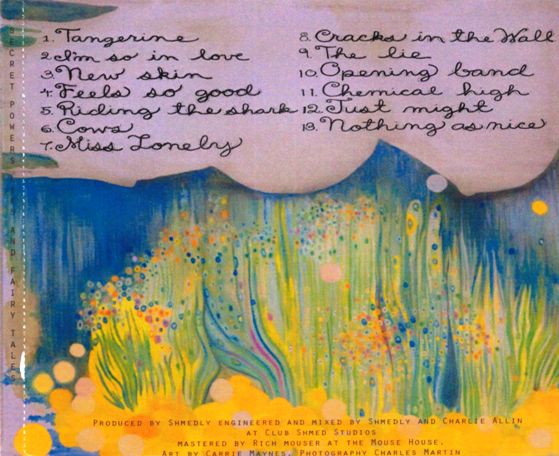 SECRET POWERS AND FAIRY TALES
1. Tangerine
2. I'm so in love
3. New skin
4. Feels so good
5. Riding the shark
6. Cows
7. Miss Lonely
8. Cracks in the Wall
9. The lie
10. Opening band
11. Chemical high
12. Just might
13. Nothing as nice
PRODUCED BY SHMEDLY ENGINEERED AND MIXED BY SHMEDLY AND CHARLIE ALLIN
AT CLUB SHMED STUDIOS
MASTERED BY RICH MOUSER AT THE MOUSE HOUSE.
ART BY CARRIE MAYNES, PHOTOGRAPHY CHARLES MARTIN